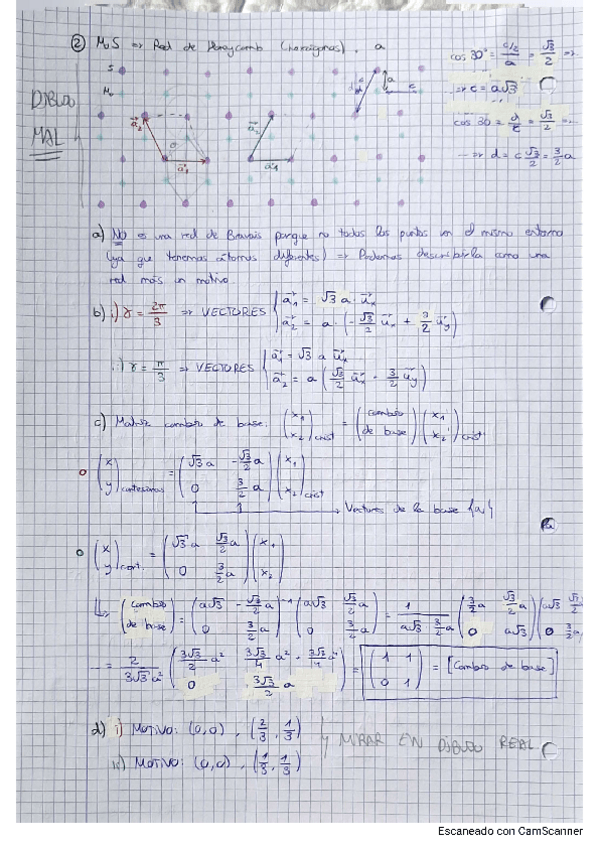 ② MoS ⇒ Red de Honeycomb (hexágonos), a
cos 30° = (c/2)/a = √3/2 ⇒
⇒ c = a√3
cos 30 = d/c = √3/2 ⇒
→ d = c √3/2 = 3/2 a
S
Mo
DIBUJO
MAL
a⃗₂
a⃗₁
a⃗₂
a⃗₁
d
c
a
c
a) No es una red de Bravais porque no todos los puntos ven el mismo entorno
(ya que tenemos átomos diferentes) ⇒ Podemos describirla como una
red más un motivo.
b) i) γ = 2π/3 ⇒ VECTORES { a⃗₁ = √3 a · u⃗x
a⃗₂ = a · (-√3/2 u⃗x + 3/2 u⃗y)
ii) γ = π/3 ⇒ VECTORES { a⃗₁ = √3 a u⃗x
a⃗₂ = a (√3/2 u⃗x · 3/2 u⃗y)
c) Matriz cambio de base: (x₁ x₂)crist = (cambio de base) (x₁ x₂)crist
(x y)cartesianas = (√3 a -√3/2 a 0 3/2 a) (x₁ x₂)crist
→ Vectores de la base {a}
(x y)cart. = (√3 a √3/2 a 0 3/2 a) (x₁ x₂)
↳ (cambio de base) = (a√3 -√3/2 a 0 3/2 a)⁻¹ (a√3 √3/2 a 0 3/2 a) = 1/(a√3 3/2 a) (3/2 a √3/2 a 0 a√3) (a√3 √3/2 0 3/2 a)
→ = 2/(3√3 a²) (3√3/2 a² 3√3/4 a² 0 3√3/2 a) = (1 1 0 1) = [Cambio de base]
d) i) MOTIVO: (0,0), (2/3, 1/3) MIRAR EN DIBUJO REAL
ii) MOTIVO: (0,0), (1/3, 1/3)
Escaneado con CamScanner